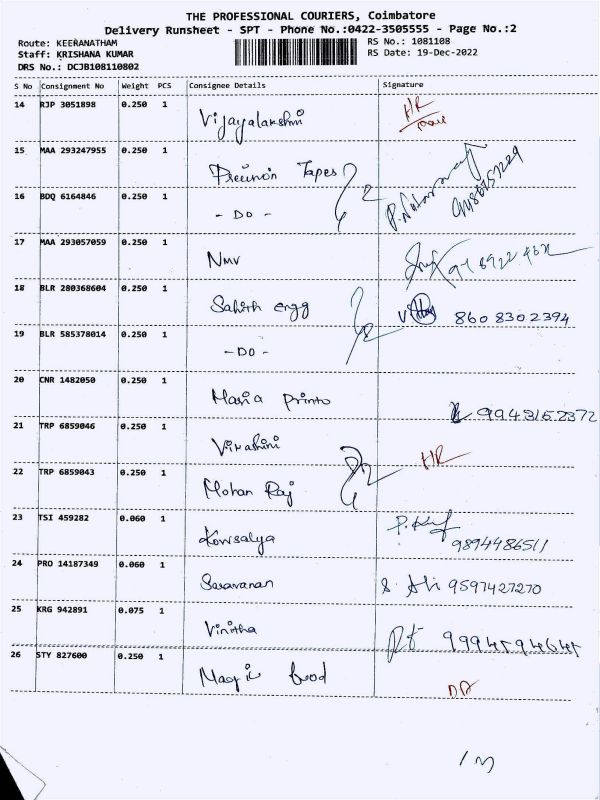 THE PROFESSIONAL COURIERS, Coimbatore
Delivery Runsheet - SPT - Phone No.:0422-3505555 - Page No.:2
Route: KEERANATHAM RS No.: 1081108
Staff: KRISHANA KUMAR RS Date: 19-Dec-2022
DRS No.: DCJB108110802
S No Consignment No Weight PCS Consignee Details Signature
14 RJP 3051898 0.250 1 Vijayalakshmi HR
15 MAA 293247955 0.250 1 Tapes
16 BDQ 6164846 0.250 1 - DO -
17 MAA 293057059 0.250 1 NMV
18 BLR 280368604 0.250 1 Sahith engg 8608302394
19 BLR 585378014 0.250 1 - DO -
20 CNR 1482050 0.250 1 Maria Printo
21 TRP 6859046 0.250 1 HR
22 TRP 6859043 0.250 1 Mohan Raj
23 TSI 459282 0.060 1 Kowsalya 9894486511
24 PRO 14187349 0.060 1 Saravanan 9597427270
25 KRG 942891 0.075 1 Vinitha
26 STY 827600 0.250 1 Magic food